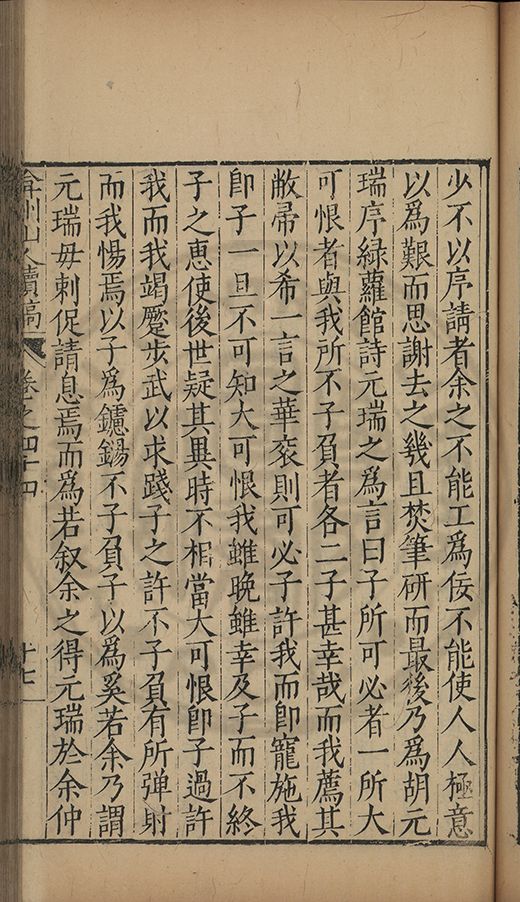 少不以序請者余之不能工爲佞不能使人人極意
以爲艱而思謝去之幾且焚筆硏而最後乃爲胡元
瑞序綠蘿館詩元瑞之爲言曰子所可必者一所大
可恨者與我所不子負者各二子甚幸哉而我薦其
敝帚以希一言之華衮則可必子許我而卽寵施我
卽子一旦不可知大可恨我雖晚雖幸及子而不終
子之惠使後世疑其異時不相當大可恨卽子過許
我而我竭蹷步武以求踐子之許不子負有所彈射
而我惕焉以子爲鑢鐋不子負子以爲奚若余乃謂
元瑞毋剌促請息焉而爲若叙余之得元瑞於余仲
弇州山人續稿 卷之四十四 十七